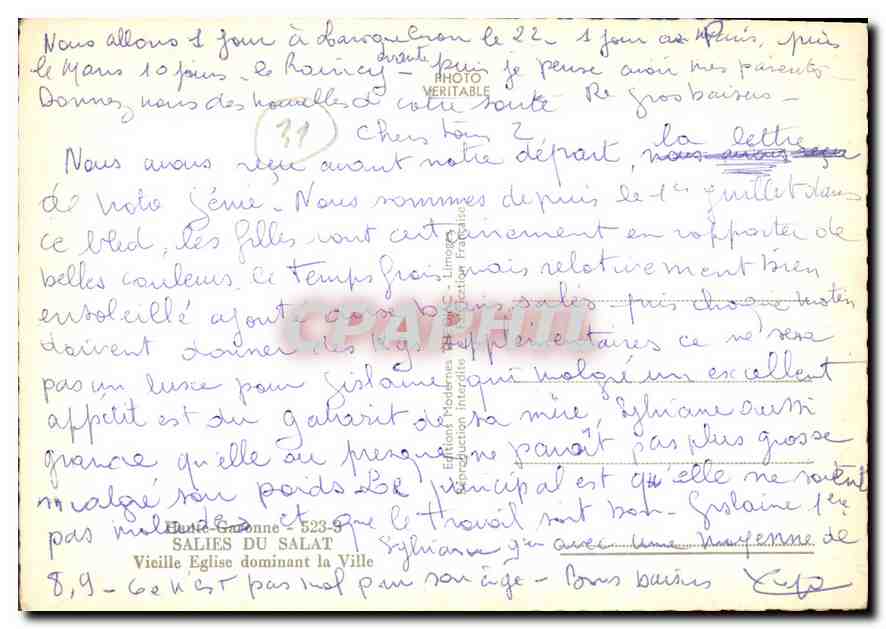 Nous allons 1 jour à le 22 - 1 jour à Paris, puis
le Mans 10 jours - le Raincy - puis je pense avoir mes parents -
PHOTO
VERITABLE
Donnez nous des nouvelles de votre santé Re gros baisers -
31
Chers tous 2
Nous avons reçu avant notre départ, nous avons reçu la lettre
de Génie - Nous sommes depuis le 1er juillet dans
ce bled, les filles vont certainement en rapporter de
belles couleurs, le temps frais mais relativement bien
ensoleillé ajouté aux bains salés pris chaque matin
doivent donner des kgs supplémentaires ce ne sera
pas un luxe pour Gislaine qui malgré un excellent
appétit est du gabarit de sa mère, Sylviane aussi
grande qu'elle ou presque ne parait pas plus grosse
malgré son poids Le principal est qu'elle ne soient
pas malades et que le travail soit bon - Gislaine 1ère
Sylviane avec une moyenne de
8,9 - Ce n'est pas mal pour son âge - Bons baisers
Haute-Garonne - 523-9
SALIES DU SALAT
Vieille Eglise dominant la Ville
Editions Modernes Limoges
Reproduction interdite Française
CPAPHIL